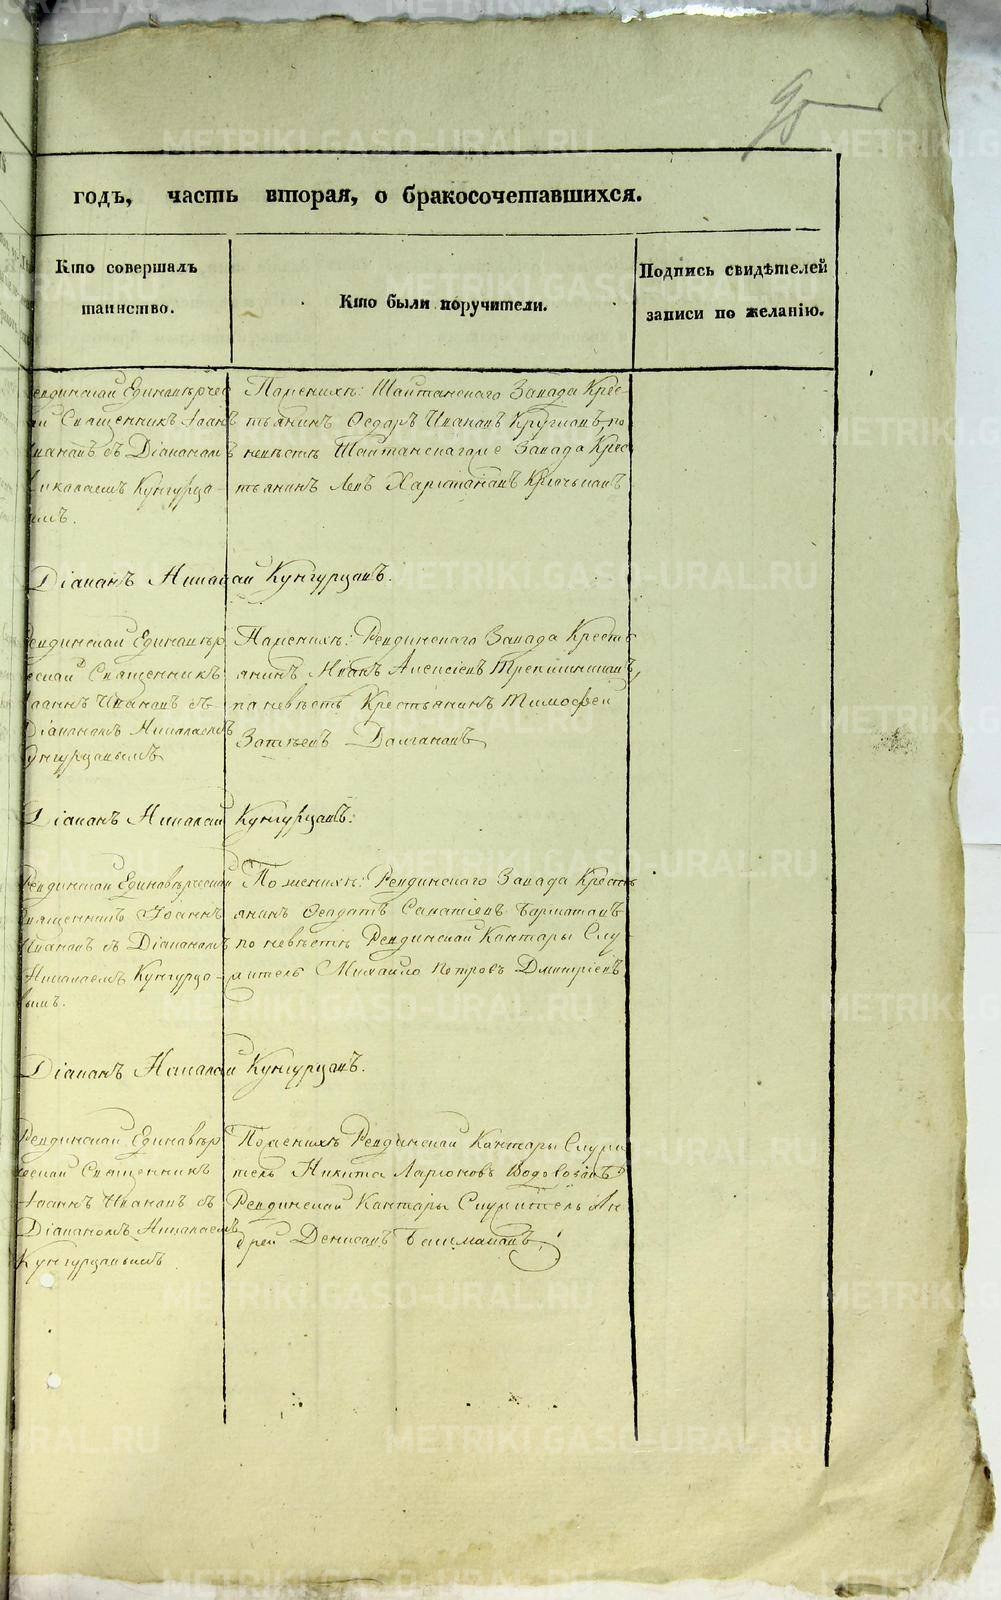 95
годъ, часть вторая, о бракосочетавшихся.
Кто совершалъ
таинство.
Кто были поручители.
Подпись свидѣтелей
записи по желанію.
Священникъ Іоаннъ
Ивановъ съ Діакономъ
Николаемъ Кунгурцо-
вымъ.
По женихѣ: Шайтанскаго Завода Крес-
тьянинъ Ѳедоръ Ивановъ по
невѣстѣ Шайтанскагоже Завода Крес
тьянинъ Левъ Харитоновъ
Діаконъ Николай Кунгурцовъ.
Ревдинской Единовѣр
ческой Священникъ
Іоаннъ Ивановъ съ
Діакономъ Николаемъ
Кунгурцовымъ
По женихѣ: Ревдинскаго Завода Кресть
янинъ Иванъ Алексѣевъ
по невѣстѣ Крестьянинъ Тимофей
Долгановъ
Діаконъ Николай Кунгурцовъ.
Ревдинской Единовѣрческой
Священникъ Іоаннъ
Ивановъ съ Діакономъ
Николаемъ Кунгурцо-
вымъ.
По женихѣ: Ревдинскаго Завода Кресть
янинъ
по невѣстѣ Ревдинской Канторы Слу-
житель Михайло Петровъ Дмитріевъ
Діаконъ Николай Кунгурцовъ.
Ревдинской Единовѣр
ческой Священникъ
Іоаннъ Ивановъ съ
Діакономъ Николаемъ
Кунгурцовымъ
По женихѣ Ревдинской Канторы Служи
тель Никита Ларіоновъ
Ревдинской Канторы Служитель Ан
дрей Денисовъ
METRIKI.GASO-URAL.RU